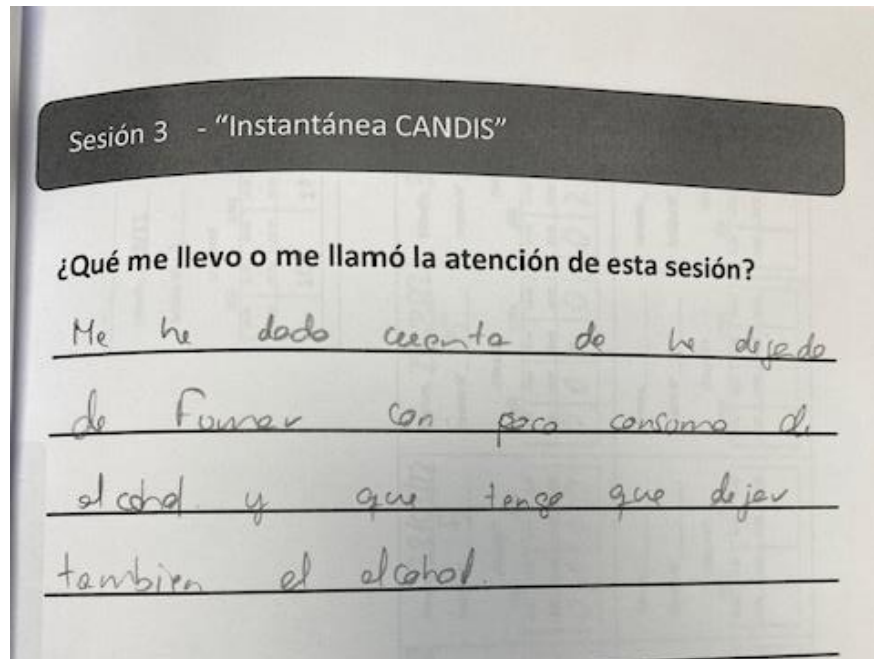 Sesión 3 - “Instantánea CANDIS”
¿Qué me llevo o me llamó la atención de esta sesión?
Me he dado cuenta de he dejado
de Fumar con poco consumo de
alcohol y que tengo que dejar
tambien el alcohol.